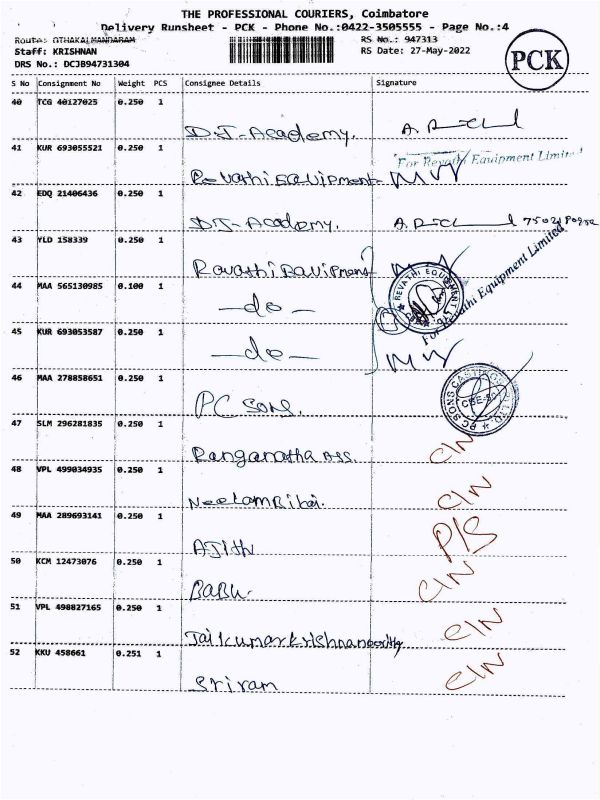 THE PROFESSIONAL COURIERS, Coimbatore
Delivery Runsheet - PCK - Phone No.:0422-3505555 - Page No.:4
Route: OTHAKALMANDAPAM
RS No.: 947313
Staff: KRISHNAN
RS Date: 27-May-2022
DRS No.: DCJB94731304
PCK
S No Consignment No Weight PCS Consignee Details Signature
40 TCG 40127025 0.250 1
D.J-Academy.
41 KUR 693055521 0.250 1
For Revathi Equipment Limited
Revathi Equipment
42 EDQ 21406436 0.250 1
DJ-Academy.
43 YLD 158339 0.250 1
For Revathi Equipment Limited
Revathi Equipment
44 MAA 565130985 0.100 1
REVATHI EQUIPMENT
-do-
45 KUR 693053587 0.250 1
-do-
46 MAA 278858651 0.250 1
PC SONS CASTINGS P LTD
CBE-50
PC Sons.
47 SLM 296281835 0.250 1
Ranganatha Ass. C/N
48 VPL 499034935 0.250 1
Neelam Bihai. C/N
49 MAA 289693141 0.250 1
Ajith P/S
50 KCM 12473076 0.250 1
Babu. C/N
51 VPL 498827165 0.250 1
Jai Kumar Krishnamoorthy C/N
52 KKU 458661 0.251 1
Sriram C/N